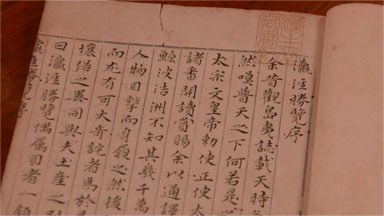 瀛涯勝覽序
余昔觀島夷誌載天時
然嘆普天之下何若是
太宗文皇帝勅使正使太
諸番開讀賞賜余以通
鯨波浩渺不知其幾千萬
人物目擊而身履之然後
而尤有可大奇詫者焉於
壤俗之異同與夫土產之
曰瀛涯勝覽俾屬目者一顧
瀛涯勝覽序